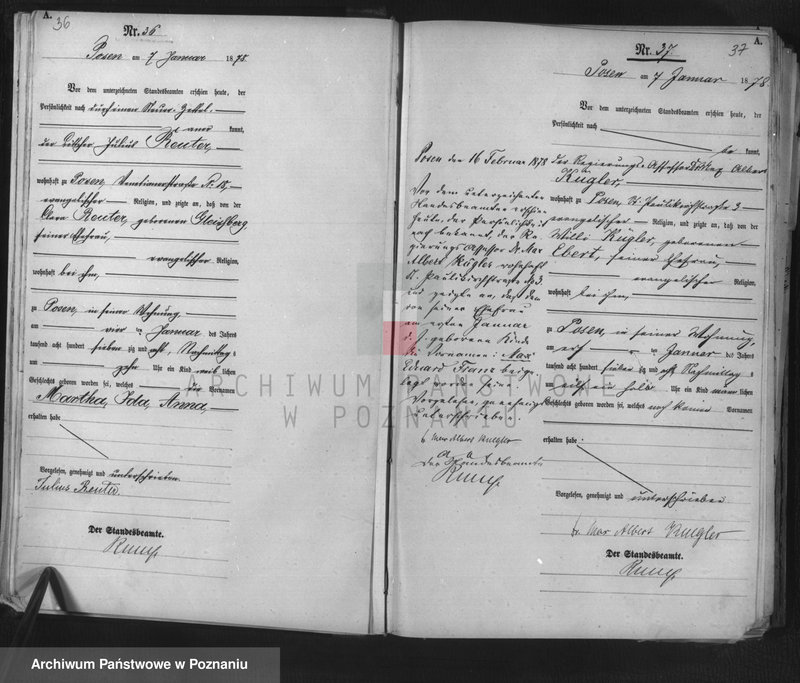 36
A.
Nr. 36
Posen am 7 Januar 1878.
Vor dem unterzeichneten Standesbeamten erschien heute, der
Persönlichkeit nach durch einen Steuer-Zettel
kannt,
der Böttcher Julius Reuter,
wohnhaft zu Posen, Venetianerstraße
evangelischer Religion, und zeigte an, daß von der
Clara Reuter, geborenen Gleissberg
seiner Ehefrau,
evangelischer Religion,
wohnhaft bei ihm,
zu Posen, in seiner Wohnung
am vier Januar des Jahres
tausend acht hundert sieben zig und acht, Nachmittags
um zehn Uhr ein Kind weib lichen
Geschlechts geboren worden sei, welches die Vornamen
Martha, Ida, Anna,
erhalten habe
Vorgelesen, genehmigt und unterschrieben
Julius Reuter.
Der Standesbeamte.
37
A.
Nr. 37
Posen am 7 Januar 1878.
Vor dem unterzeichneten Standesbeamten erschien heute, der
Persönlichkeit nach
be kannt,
der Regierungs-Assessor Albert
Kügler,
wohnhaft zu Posen, St. Paulikirchstraße 3
evangelischer Religion, und zeigte an, daß von der
Kügler, geborenen
Ebert, seiner Ehefrau,
evangelischer Religion,
wohnhaft bei ihm,
zu Posen, in seiner Wohnung
am Januar des Jahres
tausend acht hundert sieben zig und acht Nachmittag
um Uhr ein Kind männ lichen
Geschlechts geboren worden sei, welches noch keinen Vornamen
erhalten habe
Vorgelesen, genehmigt und unterschrieben
Max Albert Kuegler
Der Standesbeamte.
Posen den 16 Februar 1878
Vor dem unterzeichneten
Standesbeamten erschien
heute, der Persönlichkeit
nach bekannt, der Re
gierungs Assessor Dr. Max
Albert Kügler wohnhaft
St. Paulikirchstraße No 3.
und zeigte an, daß dem
von seiner Ehefrau
am ersten Januar
d. J. geborenen Kinde
die Vornamen: Max
Eduard Franz beige
legt worden seien.
Vorgelesen, genehmigt
unterschrieben.
Max Albert Kuegler
Der Standesbeamte
ARCHIWUM PAŃSTWOWE
W POZNANIU
Archiwum Państwowe w Poznaniu